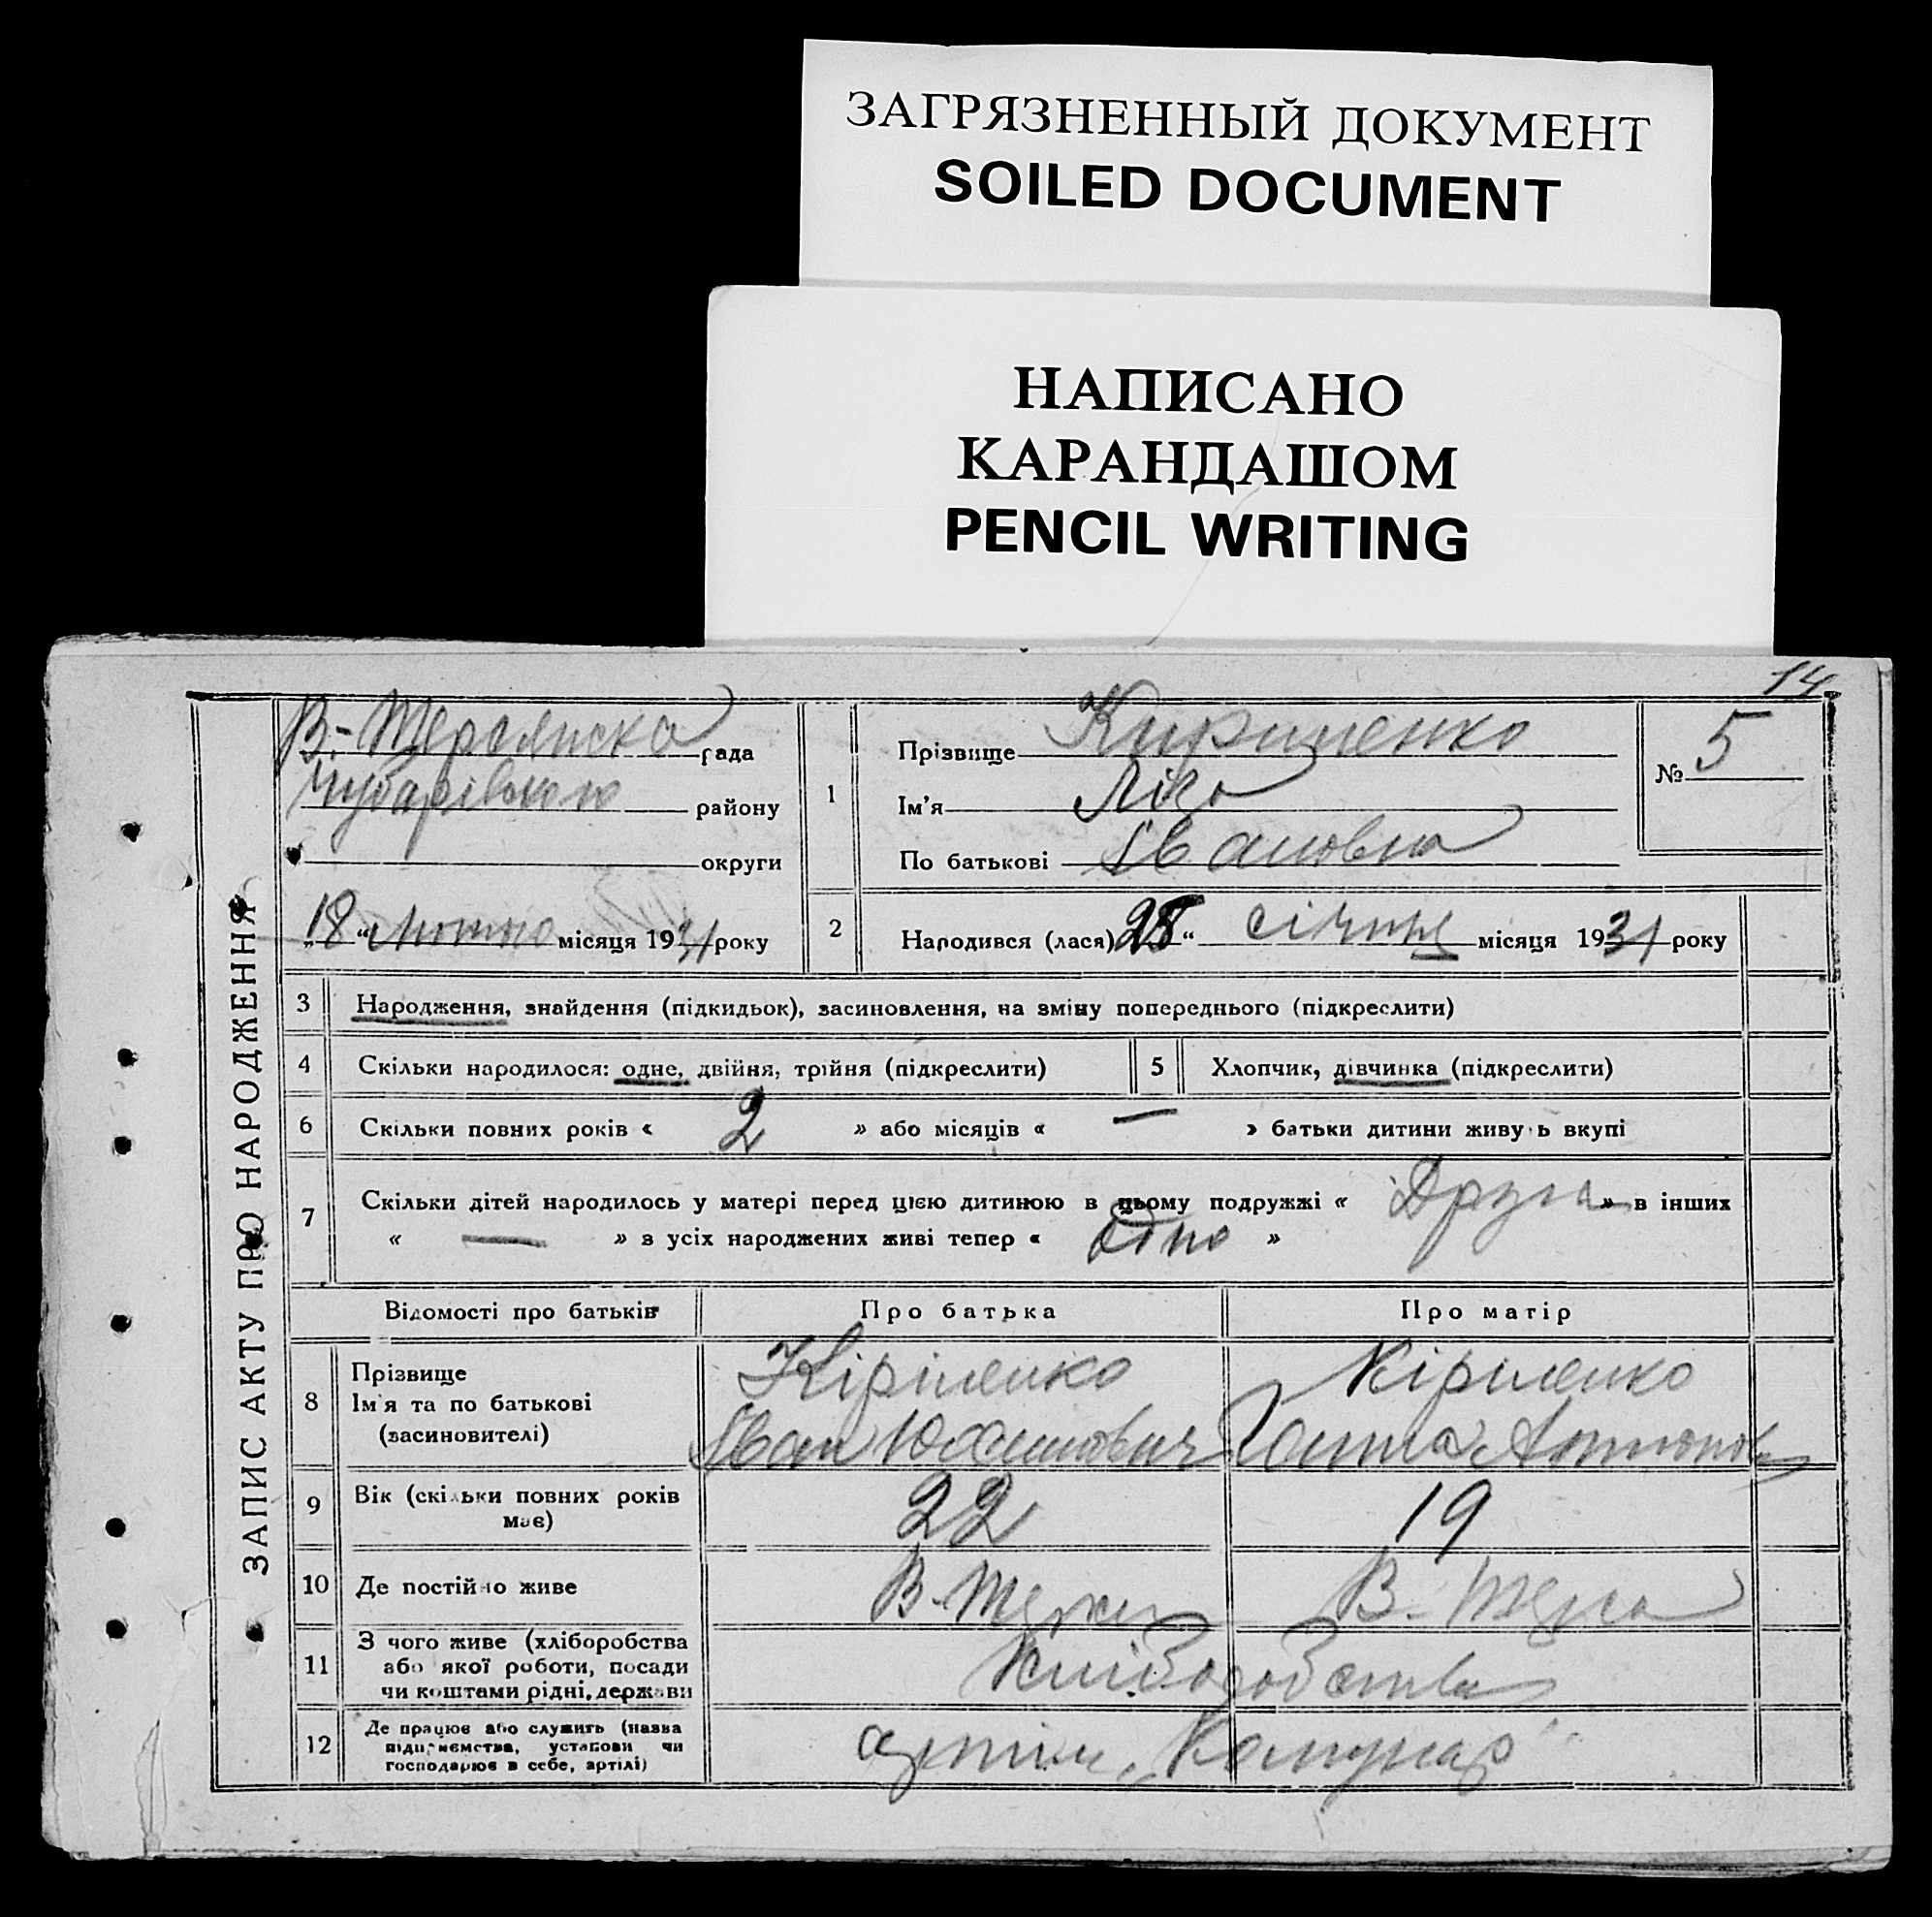 ЗАГРЯЗНЕННЫЙ ДОКУМЕНТ
SOILED DOCUMENT
НАПИСАНО
КАРАНДАШОМ
PENCIL WRITING
14
ЗАПИС АКТУ ПРО НАРОДЖЕННЯ
В.-Тер рада
Чубарівського району
округи
„18“ лютого місяця 1931 року
1
Прізвище Кириленко
Ім’я Ліза
По батькові Івановна
№ 5
2
Народився (лася) 28“ січня місяця 1931 року
3 Народження, знайдення (підкидьок), засиновлення, на зміну попереднього (підкреслити)
4 Скільки народилося: одне, двійня, трійня (підкреслити)
5 Хлопчик, дівчинка (підкреслити)
6 Скільки повних років « 2 » або місяців « — » батьки дитини живуть вкупі
7 Скільки дітей народилось у матері перед цією дитиною в цьому подружжі « Друга » в інших
« — » в усіх народжених живі тепер « одно »
Відомості про батьків Про батька Про матір
8
Прізвище Кіріленко Кіріленко
Ім’я та по батькові Іван Юхимович Ганна Антонов
(засиновителі)
9 Вік (скільки повних років має) 22 19
10 Де постійно живе В.-Терса В.-Терса
11 З чого живе (хліборобства
або якої роботи, посади
чи коштами рідні, держави
Хліборобства
12 Де працює або служить (назва
підприємства, установи чи
господарює в себе, артілі)
артіль „Комунар“